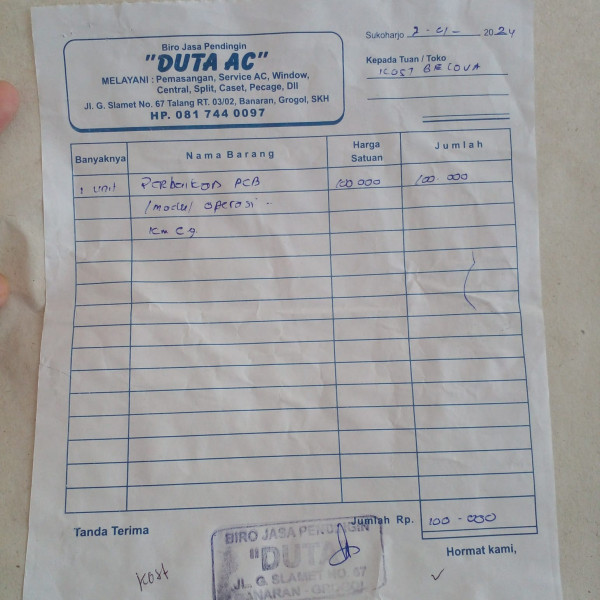 Biro Jasa Pendingin
"DUTA AC"
MELAYANI : Pemasangan, Service AC, Window,
Central, Split, Caset, Pecage, Dll
Jl. G. Slamet No. 67 Talang RT. 03/02, Banaran, Grogol, SKH
HP. 081 744 0097
Sukoharjo 2 - 01 - 2024
Kepada Tuan / Toko
KOST BELOVA
Banyaknya Nama Barang Harga Satuan Jumlah
1 unit Perbaikan PCB 100.000 100.000
/modul operasi -
Jumlah Rp. 100-000
Tanda Terima
Hormat kami,
Kost
BIRO JASA PENDINGIN
"DUTA
JL. G. SLAMET NO. 67
BANARAN - GROGOL